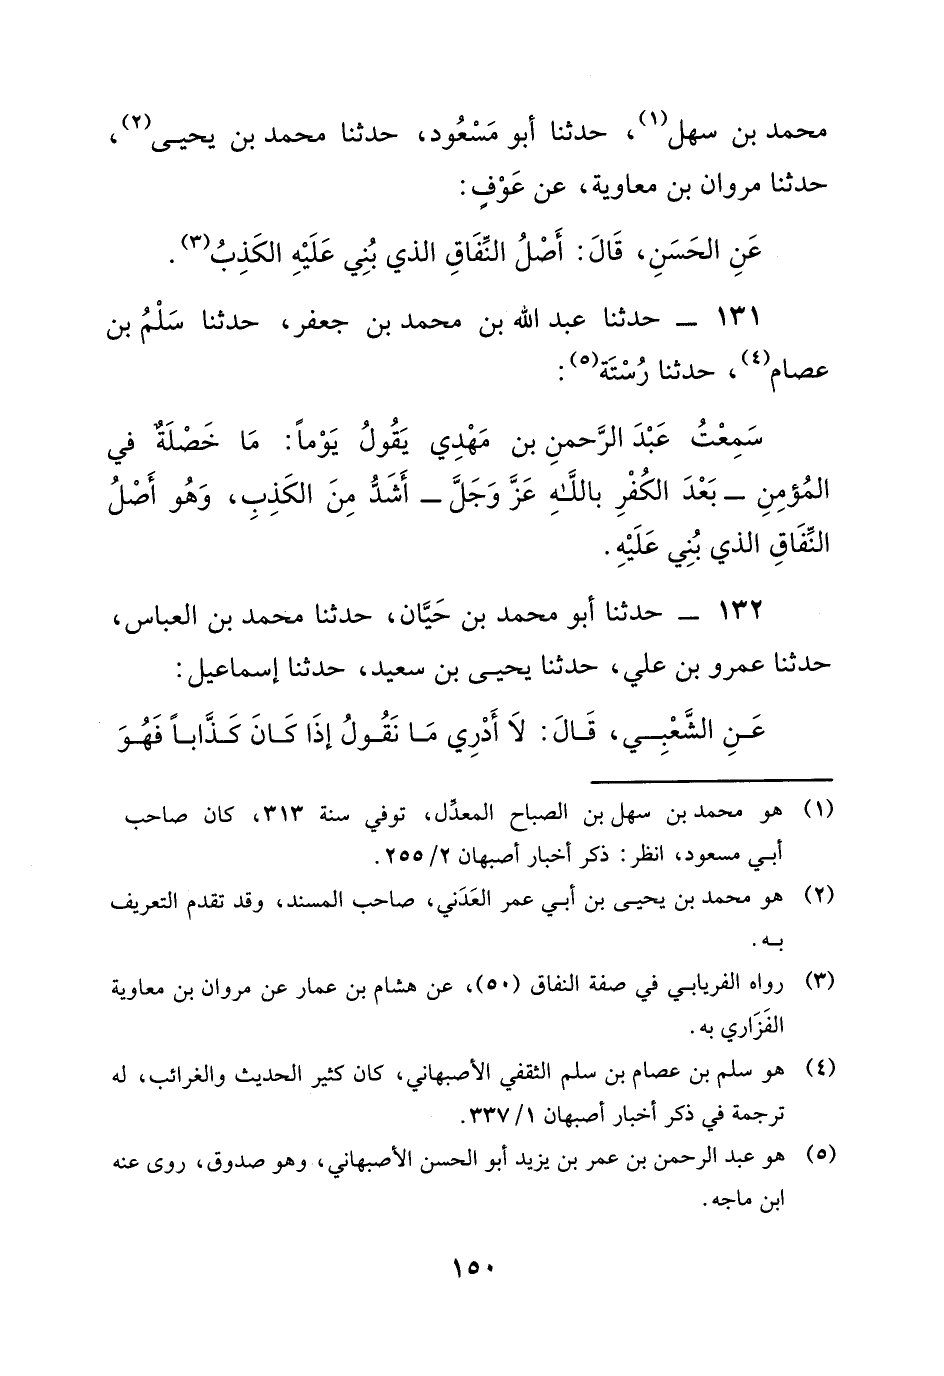 محمد بن سهل(١)، حدثنا أبو مَسْعُود، حدثنا محمد بن يحيـى(٢)،
حدثنا مروان بن معاوية، عن عَوْفٍ:
عَنِ الحَسَنِ، قَالَ: أَصْلُ النِّفَاقِ الذي بُنِي عَلَيْهِ الكَذِبُ(٣).
١٣١ ــ حدثنا عبد الله بن محمد بن جعفر، حدثنا سَلْمُ بن
عصام(٤)، حدثنا رُسْتَة(٥):
سَمِعْتُ عَبْدَ الرَّحمنِ بن مَهْدِي يَقُولُ يَوْماً: مَا خَصْلَةٌ في
المُؤمِنِ ــ بَعْدَ الكُفْرِ باللَّهِ عَزَّ وَجَلَّ ــ أَشَدُّ مِنَ الكَذِبِ، وَهُو أَصْلُ
النِّفَاقِ الذي بُنِي عَلَيْهِ.
١٣٢ ــ حدثنا أبو محمد بن حَيَّان، حدثنا محمد بن العباس،
حدثنا عمرو بن علي، حدثنا يحيـى بن سعيد، حدثنا إسماعيل:
عَـنِ الشَّعْبِـي، قَـالَ: لاَ أَدْرِي مَـا نَقُـولُ إذَا كَـانَ كَـذَّابـاً فَهُـوَ
(١) هو محمد بن سهل بن الصباح المعدِّل، توفي سنة ٣١٣، كان صاحب
أبـي مسعود، انظر: ذكر أخبار أصبهان ٢/ ٢٥٥.
(٢) هو محمد بن يحيـى بن أبـي عمر العَدَني، صاحب المسند، وقد تقدم التعريف
بـه.
(٣) رواه الفريابـي في صفة النفاق (٥٠)، عن هشام بن عمار عن مروان بن معاوية
الفَزَاري به.
(٤) هو سلم بن عصام بن سلم الثقفي الأصبهاني، كان كثير الحديث والغرائب، له
ترجمة في ذكر أخبار أصبهان ١/ ٣٣٧.
(٥) هو عبد الرحمن بن عمر بن يزيد أبو الحسن الأصبهاني، وهو صدوق، روى عنه
ابن ماجه.
١٥٠